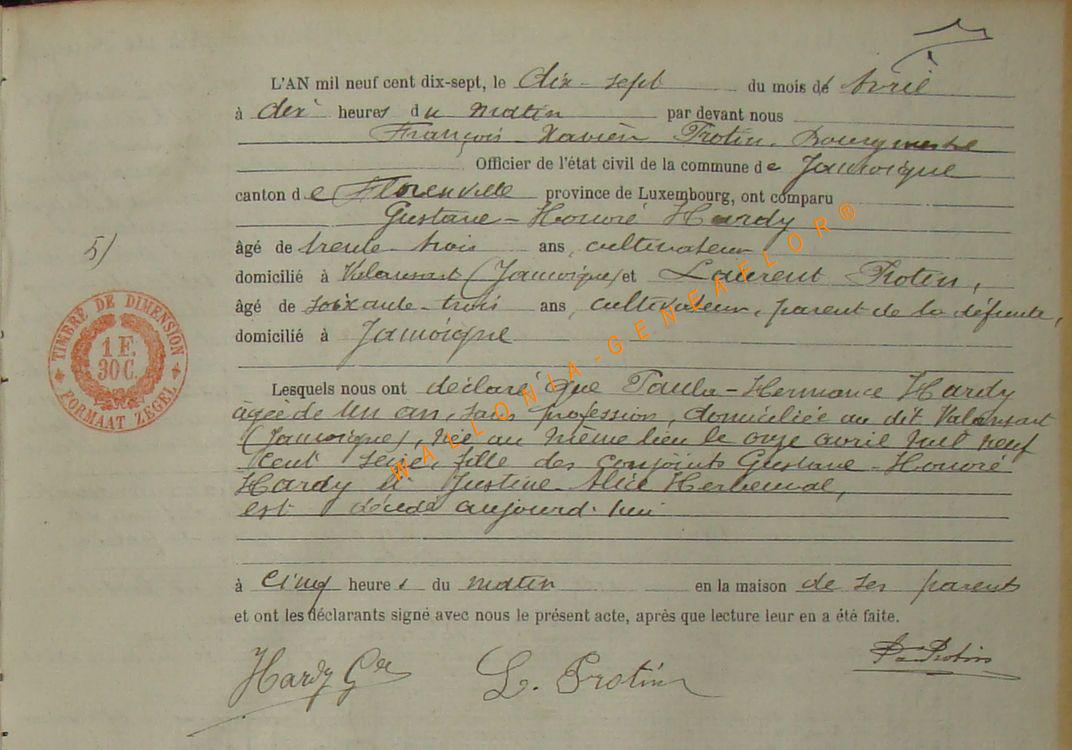 L'AN mil neuf cent dix-sept, le dix-sept du mois de Avril
à dix heures du matin par devant nous
François-Xavier Protin, Bourgmestre
Officier de l'état civil de la commune de Jamoigne
canton de Florenville province de Luxembourg, ont comparu
Gustave-Honoré Hardy
5)
âgé de trente-trois ans, cultivateur
domicilié à Valansart (Jamoigne) et Laurent Protin,
âgé de soixante-trois ans, cultivateur, parent de la défunte,
domicilié à Jamoigne
TIMBRE DE DIMENSION
1 F.
30 C.
FORMAAT ZEGEL
Lesquels nous ont déclaré que Paula-Hermance Hardy
âgée de un an, sans profession, domiciliée au dit Valansart
(Jamoigne), née au même lieu le onze avril mil neuf
cent seize, fille des conjoints Gustave-Honoré
Hardy et Justine-Alice Herbeuval,
est décédé aujourd'hui
à cinq heures du matin en la maison de ses parents
et ont les déclarants signé avec nous le présent acte, après que lecture leur en a été faite.
Hardy Gve L. Protin Protin
WALLONIA-GENEAFLOR®